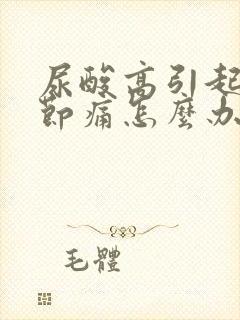 尿酸高引起
節痛怎麼办
毛體